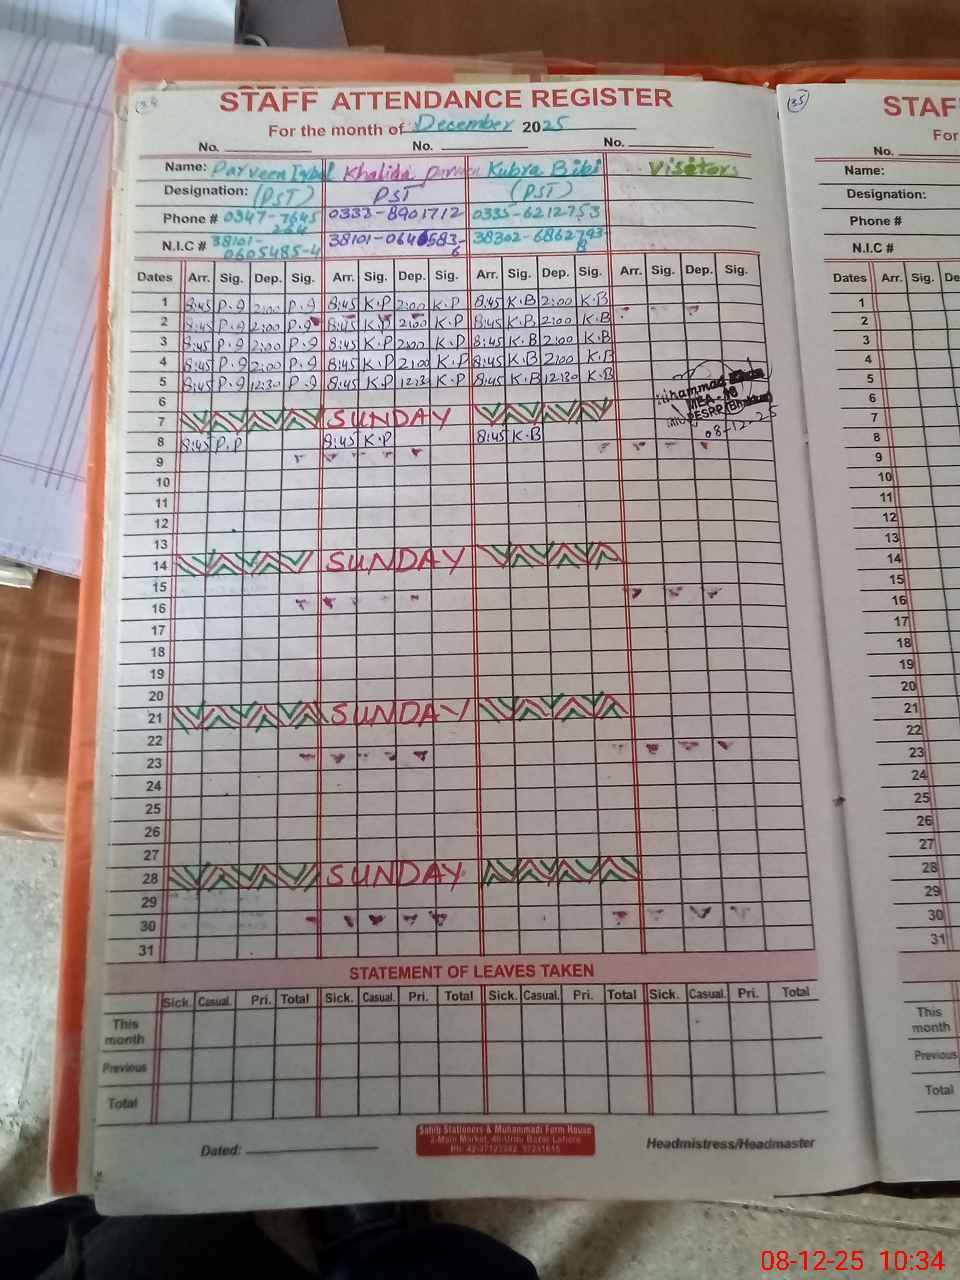 34
STAFF ATTENDANCE REGISTER
For the month of December 2025
No. No. No.
Name: Parveen Iqbal Khalida Parveen Kubra Bibi Visitors
Designation: (PST) PST (PST)
Phone # 0347-7645 0333-8901712 0335-6212753
264
N.I.C # 38101- 38101-0640583- 38302-6862793-
0605485-4 6 8
Dates Arr. Sig. Dep. Sig. Arr. Sig. Dep. Sig. Arr. Sig. Dep. Sig. Arr. Sig. Dep. Sig.
1 8:45 P.I 2:00 P.I 8:45 K.P 2:00 K.P 8:45 K.B 2:00 K.B
2 8:45 P.I 2:00 P.I 8:45 K.P 2:00 K.P 8:45 K.B 2:00 K.B
3 8:45 P.I 2:00 P.I 8:45 K.P 2:00 K.P 8:45 K.B 2:00 K.B
4 8:45 P.I 2:00 P.I 8:45 K.P 2:00 K.P 8:45 K.B 2:00 K.B
5 8:45 P.I 12:30 P.I 8:45 K.P 12:30 K.P 8:45 K.B 12:30 K.B
6
7 SUNDAY
Muhammad
MBA-
PESRP (Bhakkar)
08-12-25
8 8:45 P.P 8:45 K.P 8:45 K.B
9
10
11
12
13
14 SUNDAY
15
16
17
18
19
20
21 SUNDAY
22
23
24
25
26
27
28 SUNDAY
29
30
31
STATEMENT OF LEAVES TAKEN
Sick. Casual. Pri. Total Sick. Casual. Pri. Total Sick. Casual. Pri. Total Sick. Casual. Pri. Total
This month
Previous
Total
Sahib Stationers & Muhammadi Form House
2-Main Market, 40-Urdu Bazar Lahore
Dated: Headmistress/Headmaster
35
STAF
For
No.
Name:
Designation:
Phone #
N.I.C #
Dates Arr. Sig. De
1
2
3
4
5
6
7
8
9
10
11
12
13
14
15
16
17
18
19
20
21
22
23
24
25
26
27
28
29
30
31
Sick. Casual
This month
Previous
Total
08-12-25 10:34